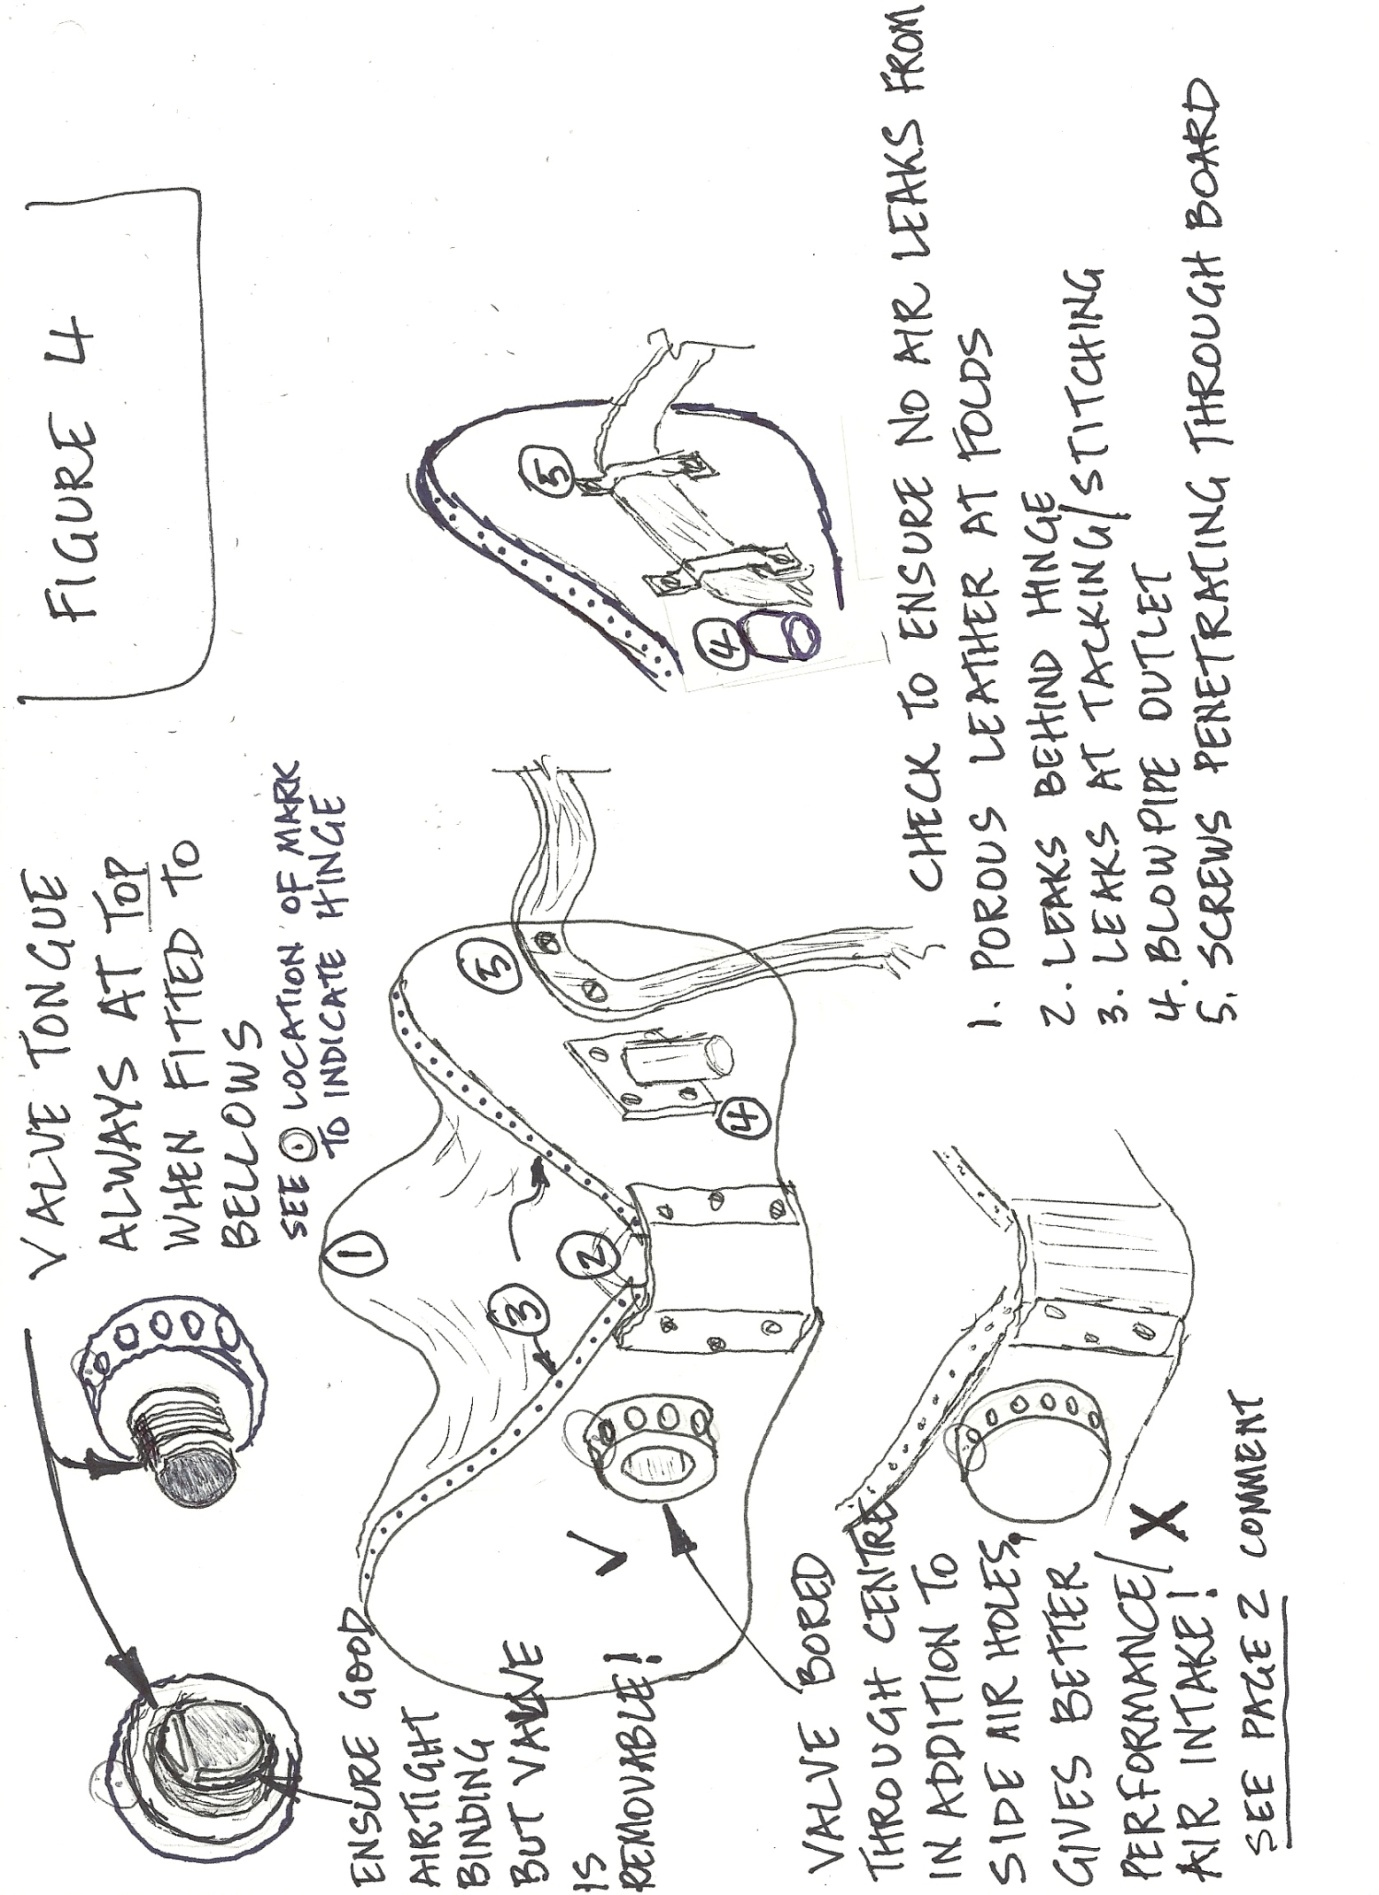 FIGURE 4
VALVE TONGUE
ALWAYS AT TOP
WHEN FITTED TO
BELLOWS
SEE ⊙ LOCATION OF MARK
TO INDICATE HINGE
ENSURE GOOD
AIRTIGHT
BINDING
BUT VALVE
IS
REMOVABLE!
1
2
3
4
5
4
5
VALVE BORED
THROUGH CENTRE
IN ADDITION TO
SIDE AIR HOLES,
GIVES BETTER
PERFORMANCE/
AIR INTAKE!
X
SEE PAGE 2 COMMENT
CHECK TO ENSURE NO AIR LEAKS FROM
1. POROUS LEATHER AT FOLDS
2. LEAKS BEHIND HINGE
3. LEAKS AT TACKING/STITCHING
4. BLOWPIPE OUTLET
5. SCREWS PENETRATING THROUGH BOARD